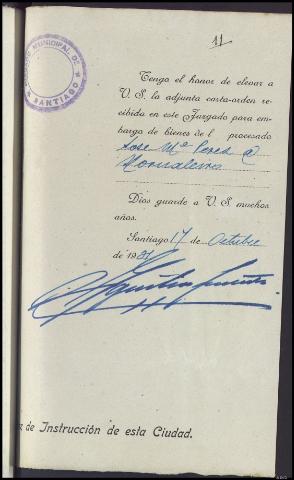 11
JUZGADO MUNICIPAL DE
SANTIAGO
Tengo el honor de elevar a
V. S. la adjunta carta-orden re-
cibida en este Juzgado para em-
bargo de bienes del procesado
Jose Mª Perez
Dios guarde a V. S. muchos
años.
Santiago 17 de Octubre
de 1931
de Instrucción de esta Ciudad.